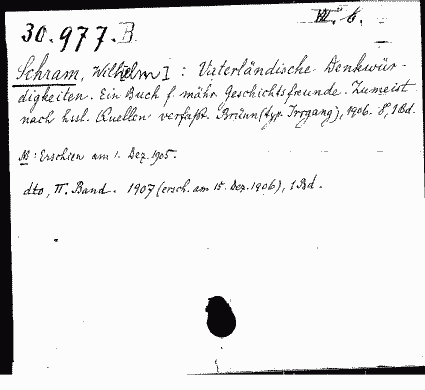 30.977.B
III. 6.
Schram, Wilhelm I : Vaterländische Denkwür-
digkeiten. Ein Buch f. mähr. Geschichtsfreunde. Zumeist
nach hsl. Quellen verfaßt. Brünn (typ. Irrgang), 1906. 8°, 1 Bd.
NB: Erschien am 1. Dez. 1905.
dto, II. Band. 1907 (ersch. am 15. Dez. 1906), 1 Bd.